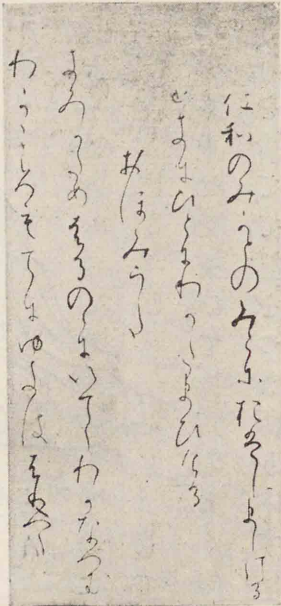 仁和のみかとのみこにおはしましける
ときにひとにわかなたまひける
おほみうた
きみかためはるのにいてゝわかなつむ
わかころもてにゆきはふりつゝ